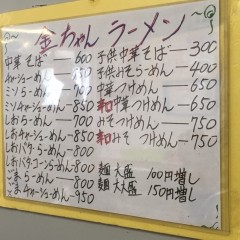 金ちゃんラーメン
中華そば 600
チャーシューめん 750
ミソらーめん 700
ミソチャーシューめん 850
しおらーめん 700
しおチャーシューめん 850
しおバターらーめん 800
しおバターコーンらーめん 850
ごまらーめん 800
ごまチャーシューめん 950
子供中華そば 300
子供みそらーめん 400
中華つけめん 650
和中華つけめん 650
みそつけめん 750
和みそつけめん 750
麺 大盛 100円増し
麺 大大盛 150円増し